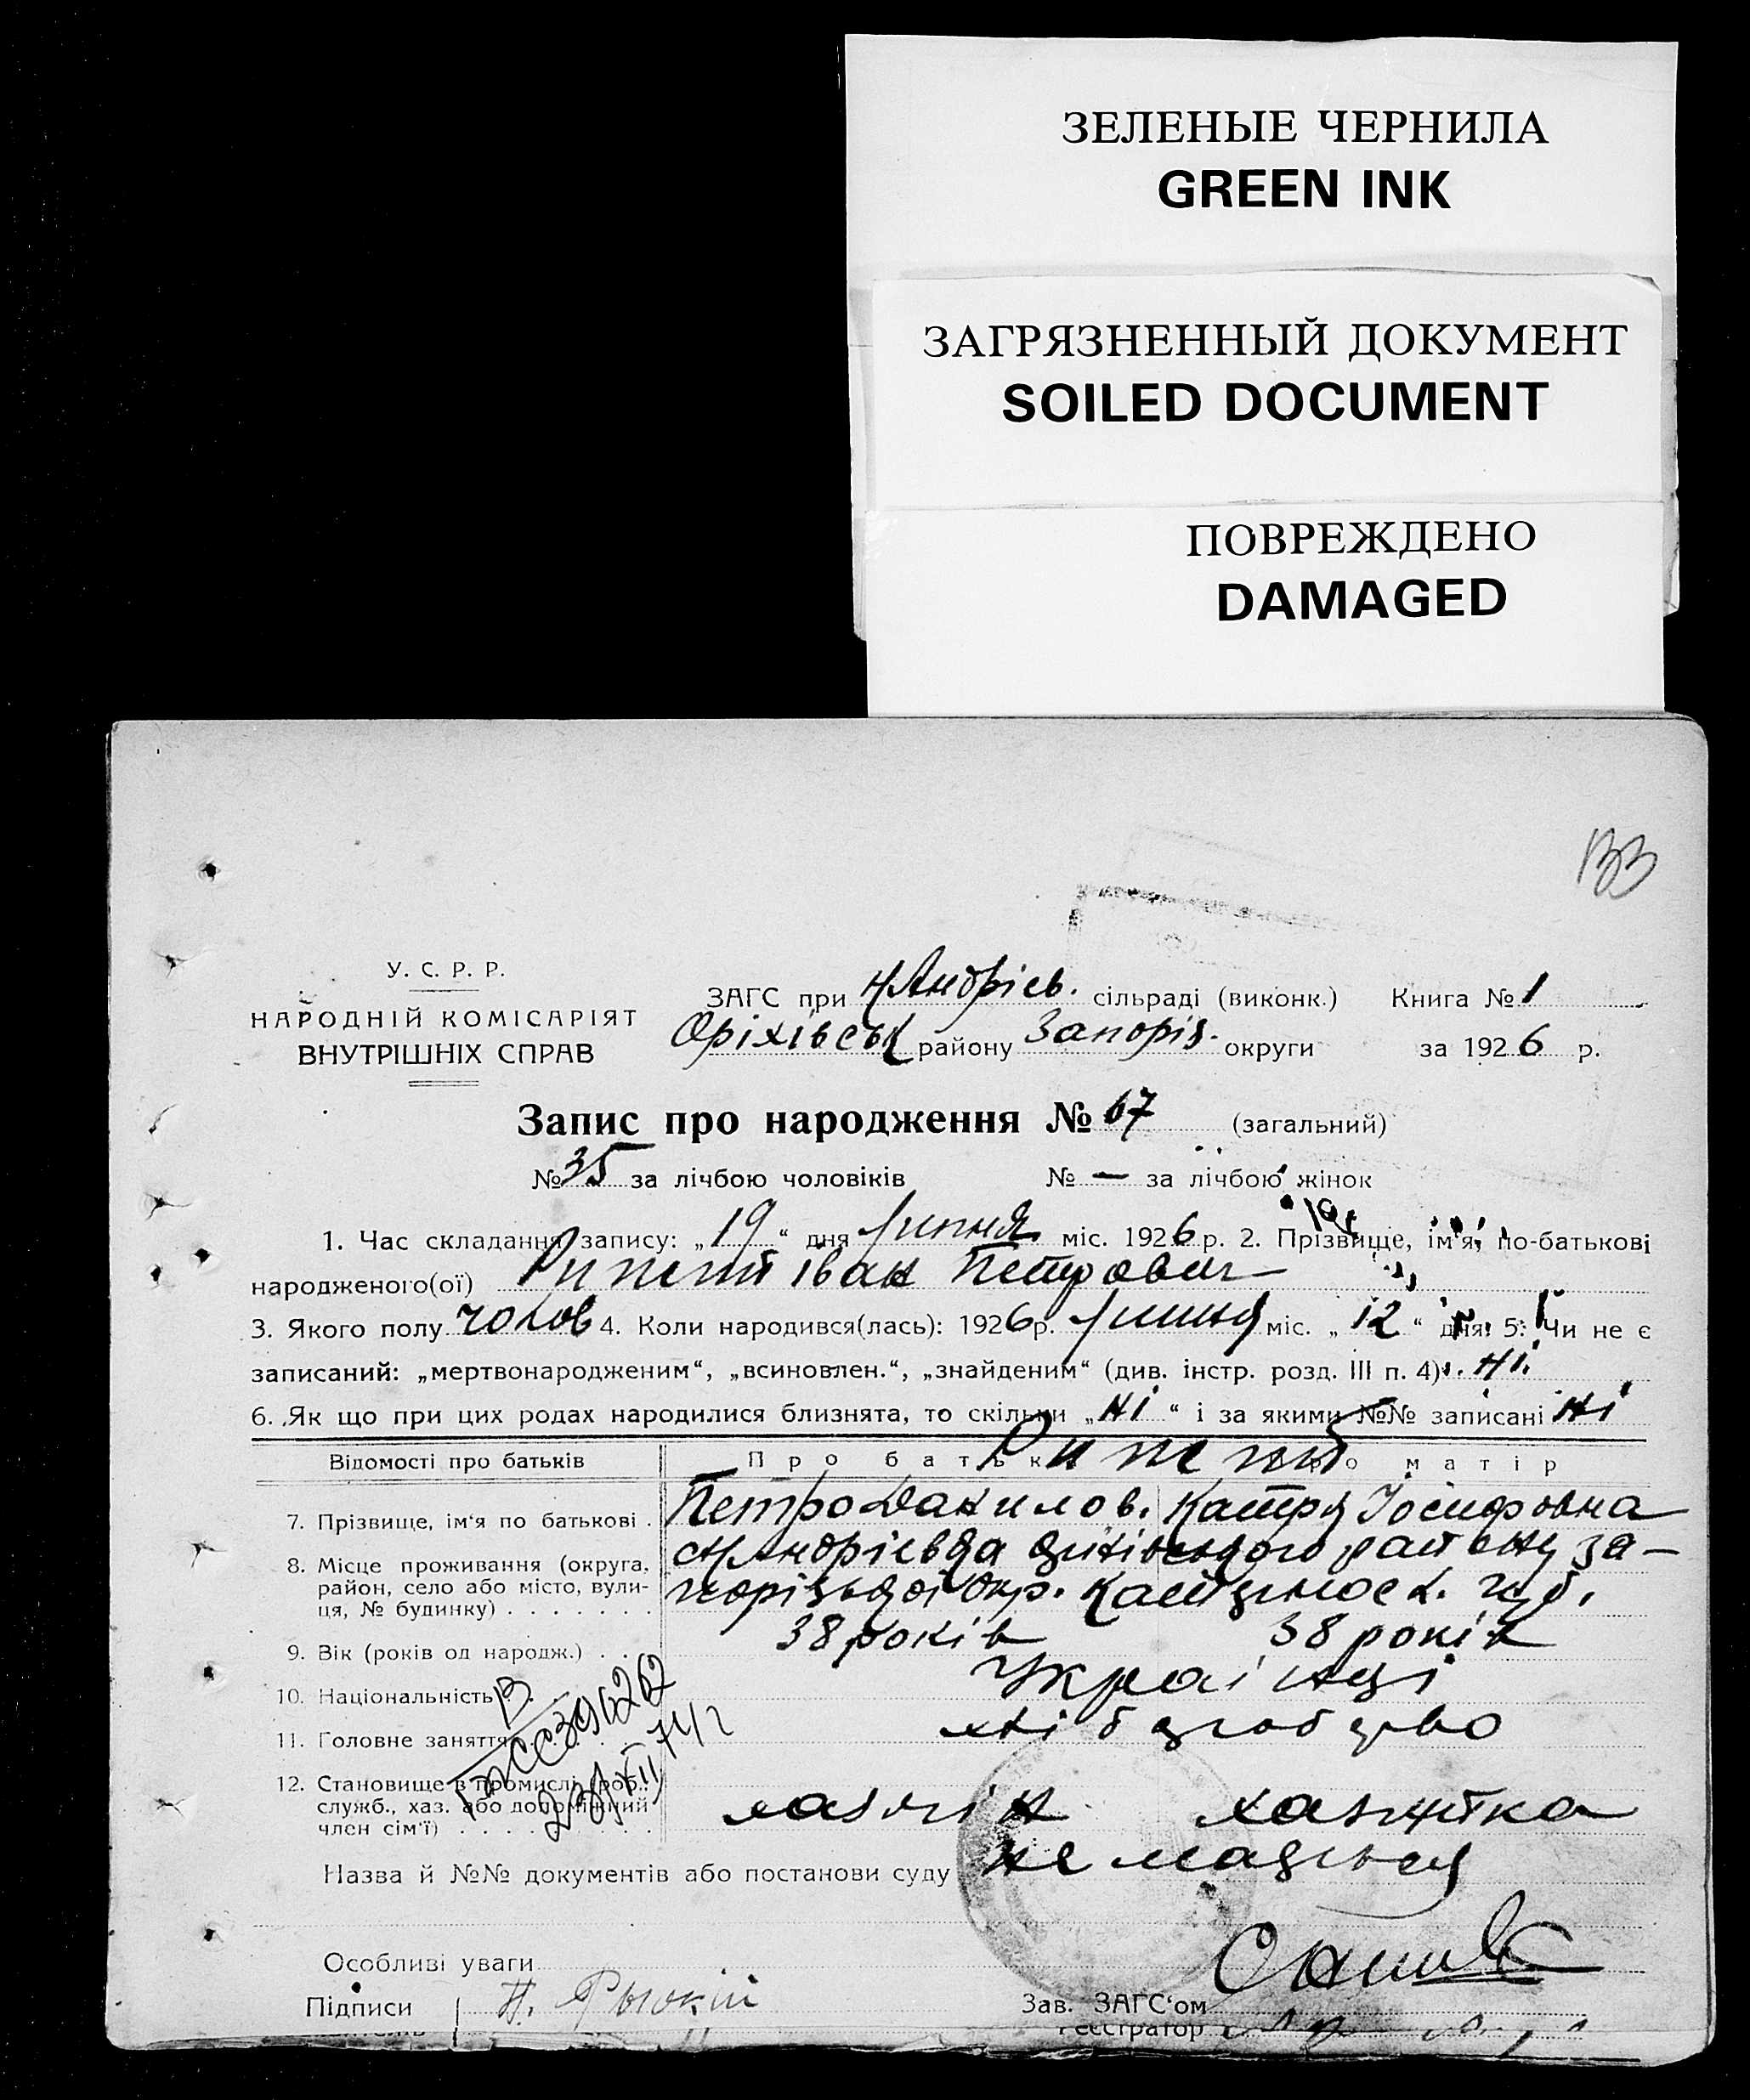 ЗЕЛЕНЫЕ ЧЕРНИЛА
GREEN INK
ЗАГРЯЗНЕННЫЙ ДОКУМЕНТ
SOILED DOCUMENT
ПОВРЕЖДЕНО
DAMAGED
133
У. С. Р. Р.
НАРОДНІЙ КОМІСАРІЯТ
ВНУТРІШНІХ СПРАВ
ЗАГС при Н Андріев. сільраді (виконк.) Книга № 1
Оріхівськ району Запоріз. округи за 1926 р.
Запис про народження № 67 (загальний)
№ 35 за лічбою чоловіків № — за лічбою жінок
1. Час складання запису: „19“ дня липня міс. 1926 р. 2. Прізвище, ім'я, по-батькові
народженого(ої) іван Петрович
3. Якого полу чолов 4. Коли народився(лась): 1926 р. липня міс. „12“ дня. 5. Чи не є
записаний: „мертвонародженим“, „всиновлен.“, „знайденим“ (див. інстр. розд. III п. 4). Ні.
6. Як що при цих родах народилися близнята, то скільки „Ні“ і за якими №№ записані Ні
Відомості про батьків Про батька Про матір
7. Прізвище, ім'я по батькові . Петро Данилов. Катря Іосифовна
8. Місце проживання (округа, район, село або місто, вулиця, № будинку) . . . . . . . Н Андріевка району за-
порізької окр.
9. Вік (років од народж.) . . . 38 років 38 років
10. Національність Українці
11. Головне заняття хліборобство
12. Становище в промислі (роб., служб., хаз. або допоміжний член сім'ї) . . . . . . . . хазяїн хазяйка
Назва й №№ документів або постанови суду не мається
Особливі уваги
Підписи
Зав. ЗАГС'ом
Реєстратор